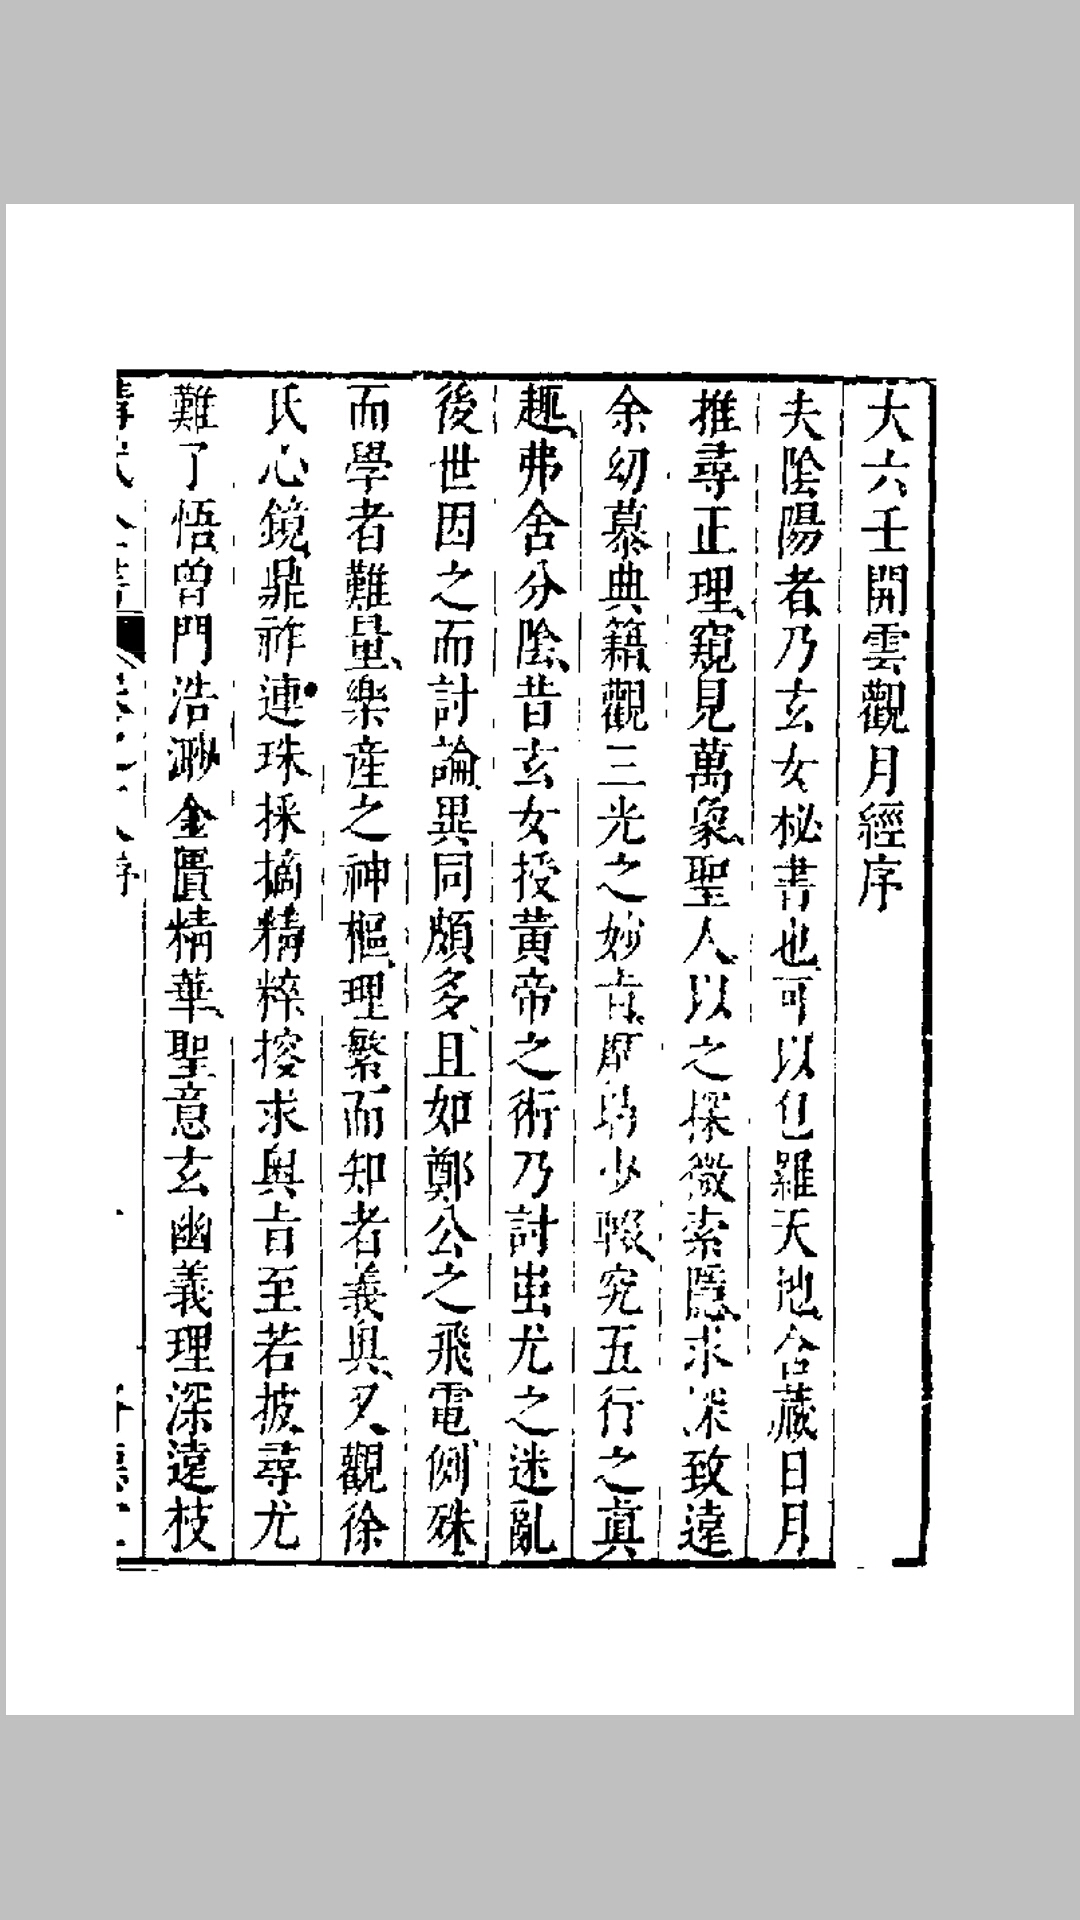 大六壬開雲觀月經序
夫陰陽者乃玄女秘書也可以包羅天地含藏日月
推尋正理窺見萬象聖人以之探微索隱求深致遠
余幼慕典籍觀三光之妙旨少輟究五行之真
趣弗舍分陰昔玄女授黃帝之術乃討蚩尤之迷亂
後世因之而討論異同頗多且如鄭公之飛電側殊
而學者難量樂產之神樞理繁而知者義與又觀徐
氏心鏡鼎祚連珠採摘精粹搜求奥旨至若披尋尤
難了悟曾門浩渺金匱精華聖意玄幽義理深遠枝